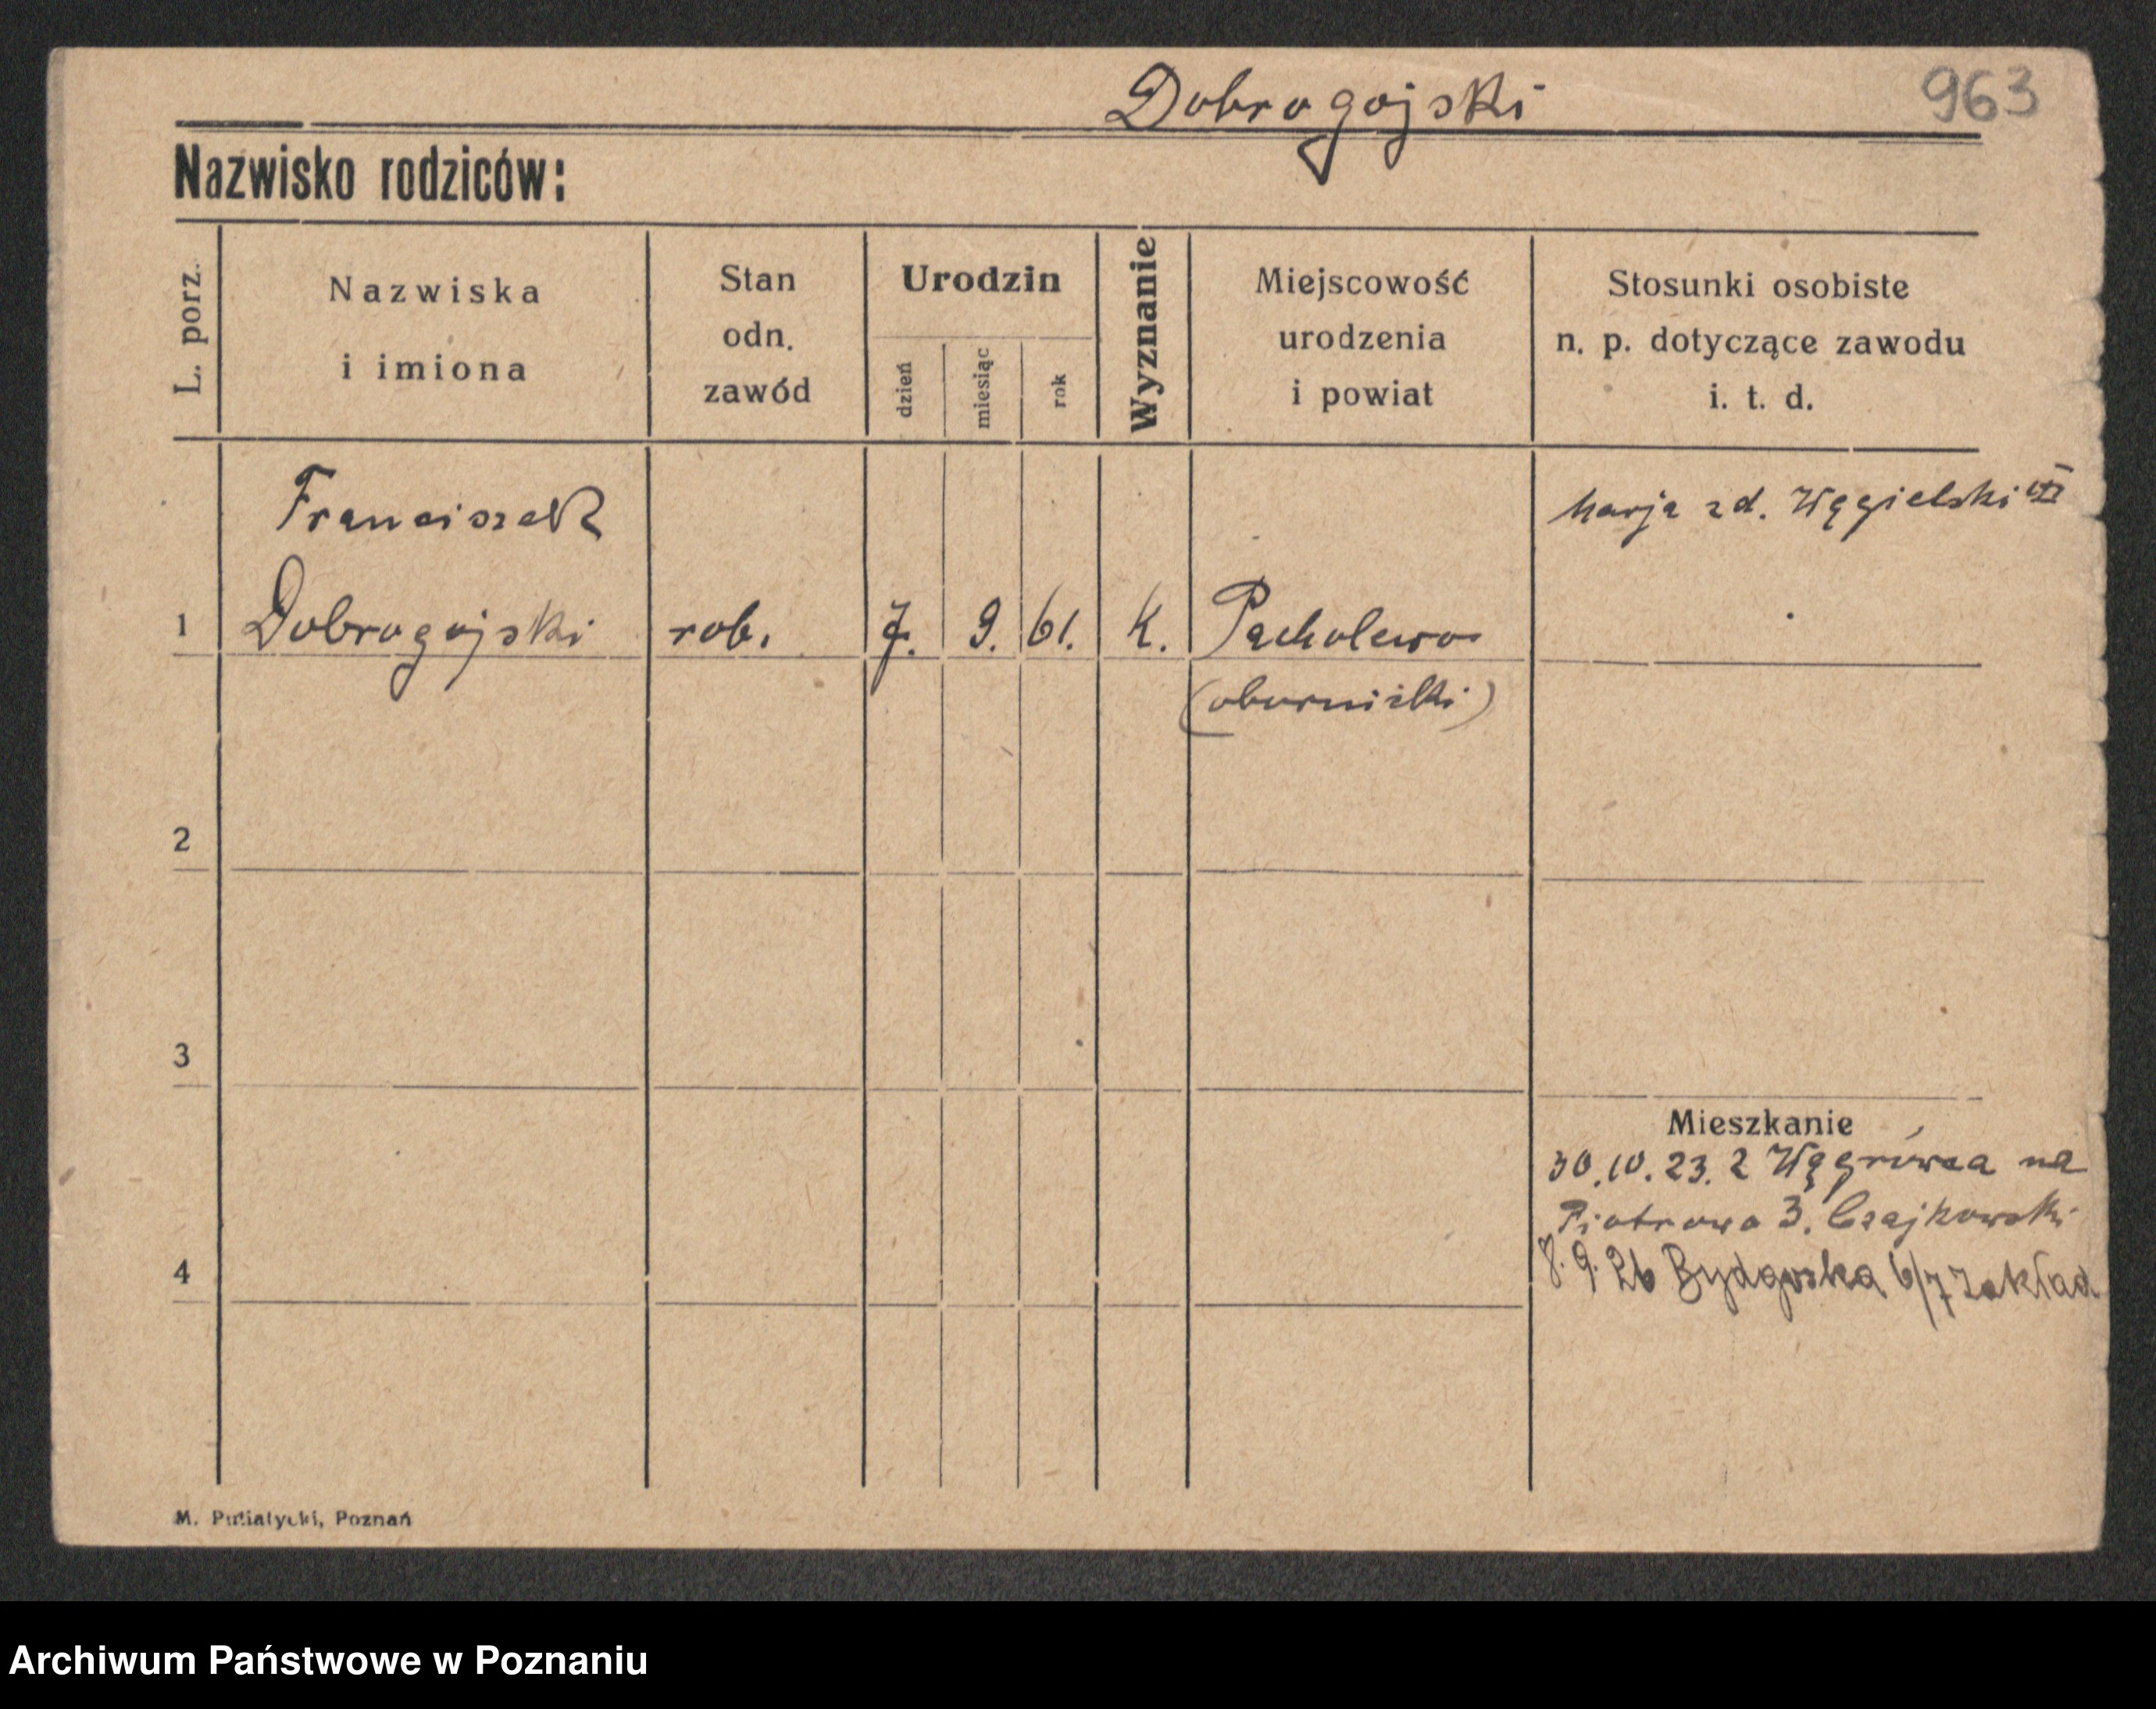 Dobrogojski
963
Nazwisko rodziców:
L. porz.
Nazwiska
i imiona
Stan
odn.
zawód
Urodzin
dzień
miesiąc
rok
Wyznanie
Miejscowość
urodzenia
i powiat
Stosunki osobiste
n. p. dotyczące zawodu
i. t. d.
Franciszek
Marja zd. Węgielski
1 Dobrogojski rob. 7. 9. 61. K. Pacholewo
(obornicki)
2
3
Mieszkanie
30.10.23. z Wągrówca na
Piotrowo 3. Czajkowski
4
8.9.26 Bydgoska 6/7 Zakład
M. Putiatycki, Poznań
Archiwum Państwowe w Poznaniu